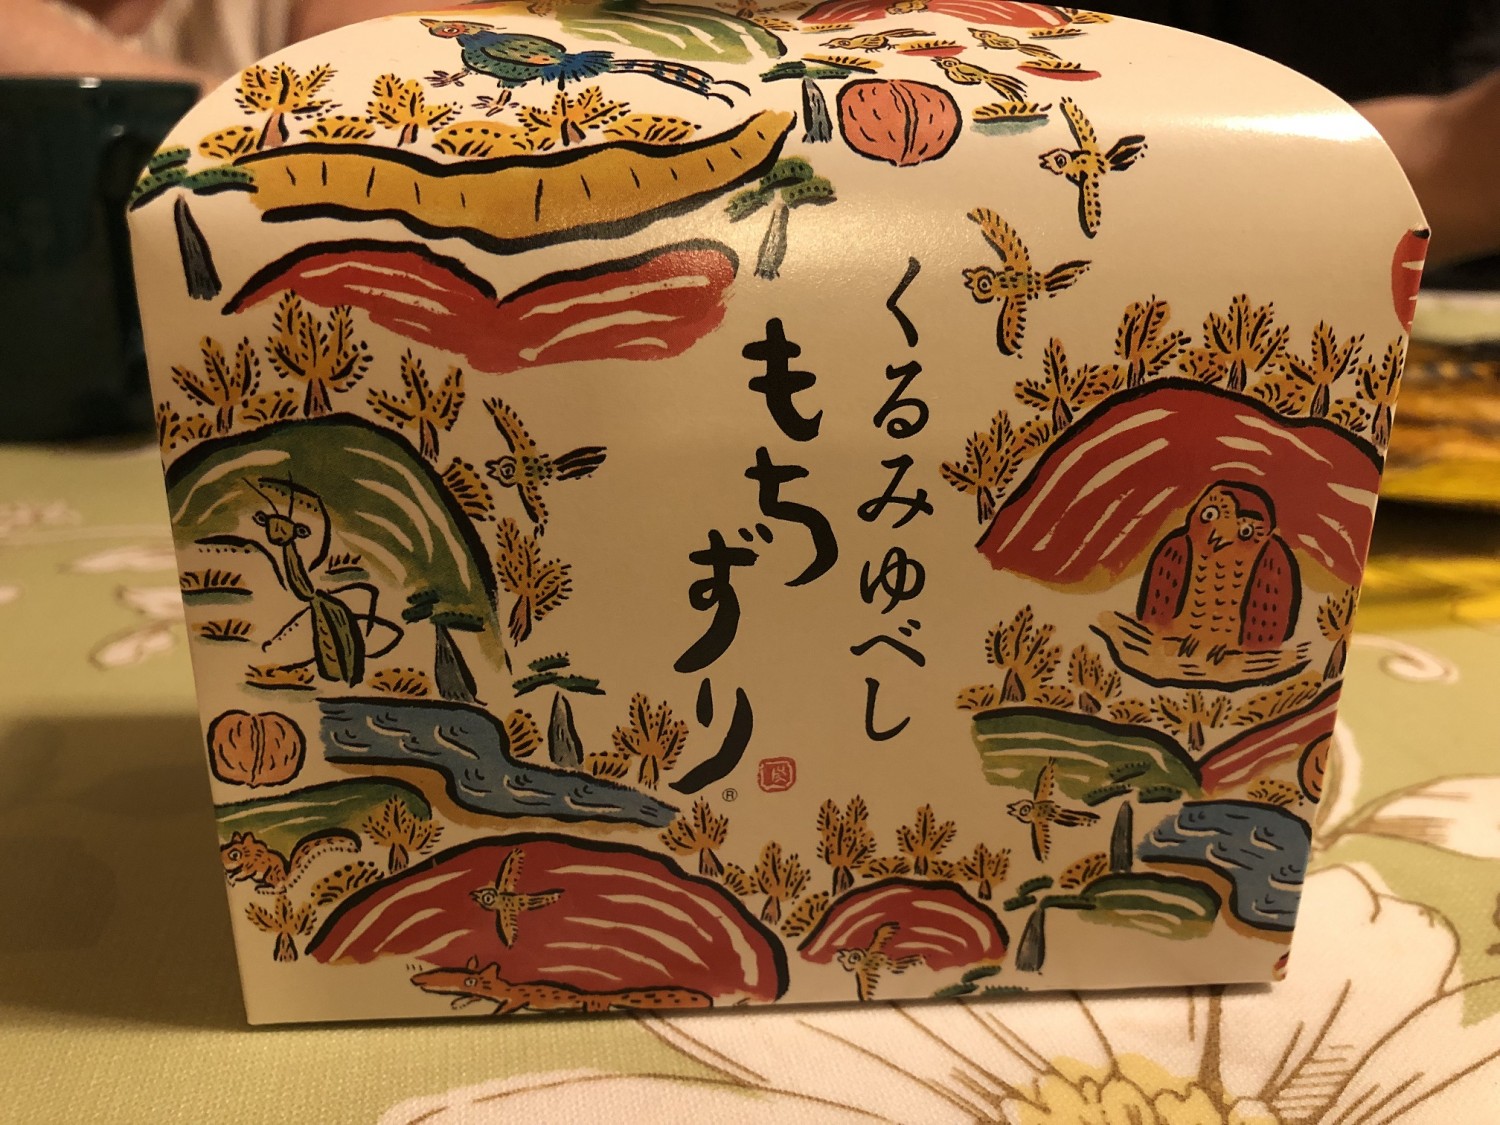 くるみゆべし
もちずり
®